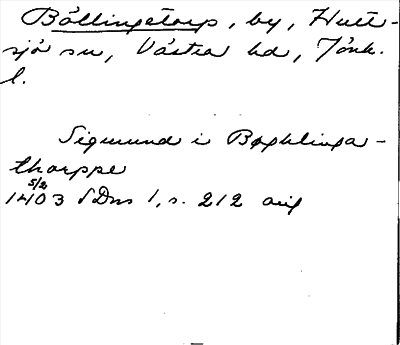 Bållingstorp, by, Hult-
sjö sn, Västra hd, Jönk.
l.
Sigmund i Boghlinga-
thorppe
5/2
1403 SDns 1, s. 212 orig